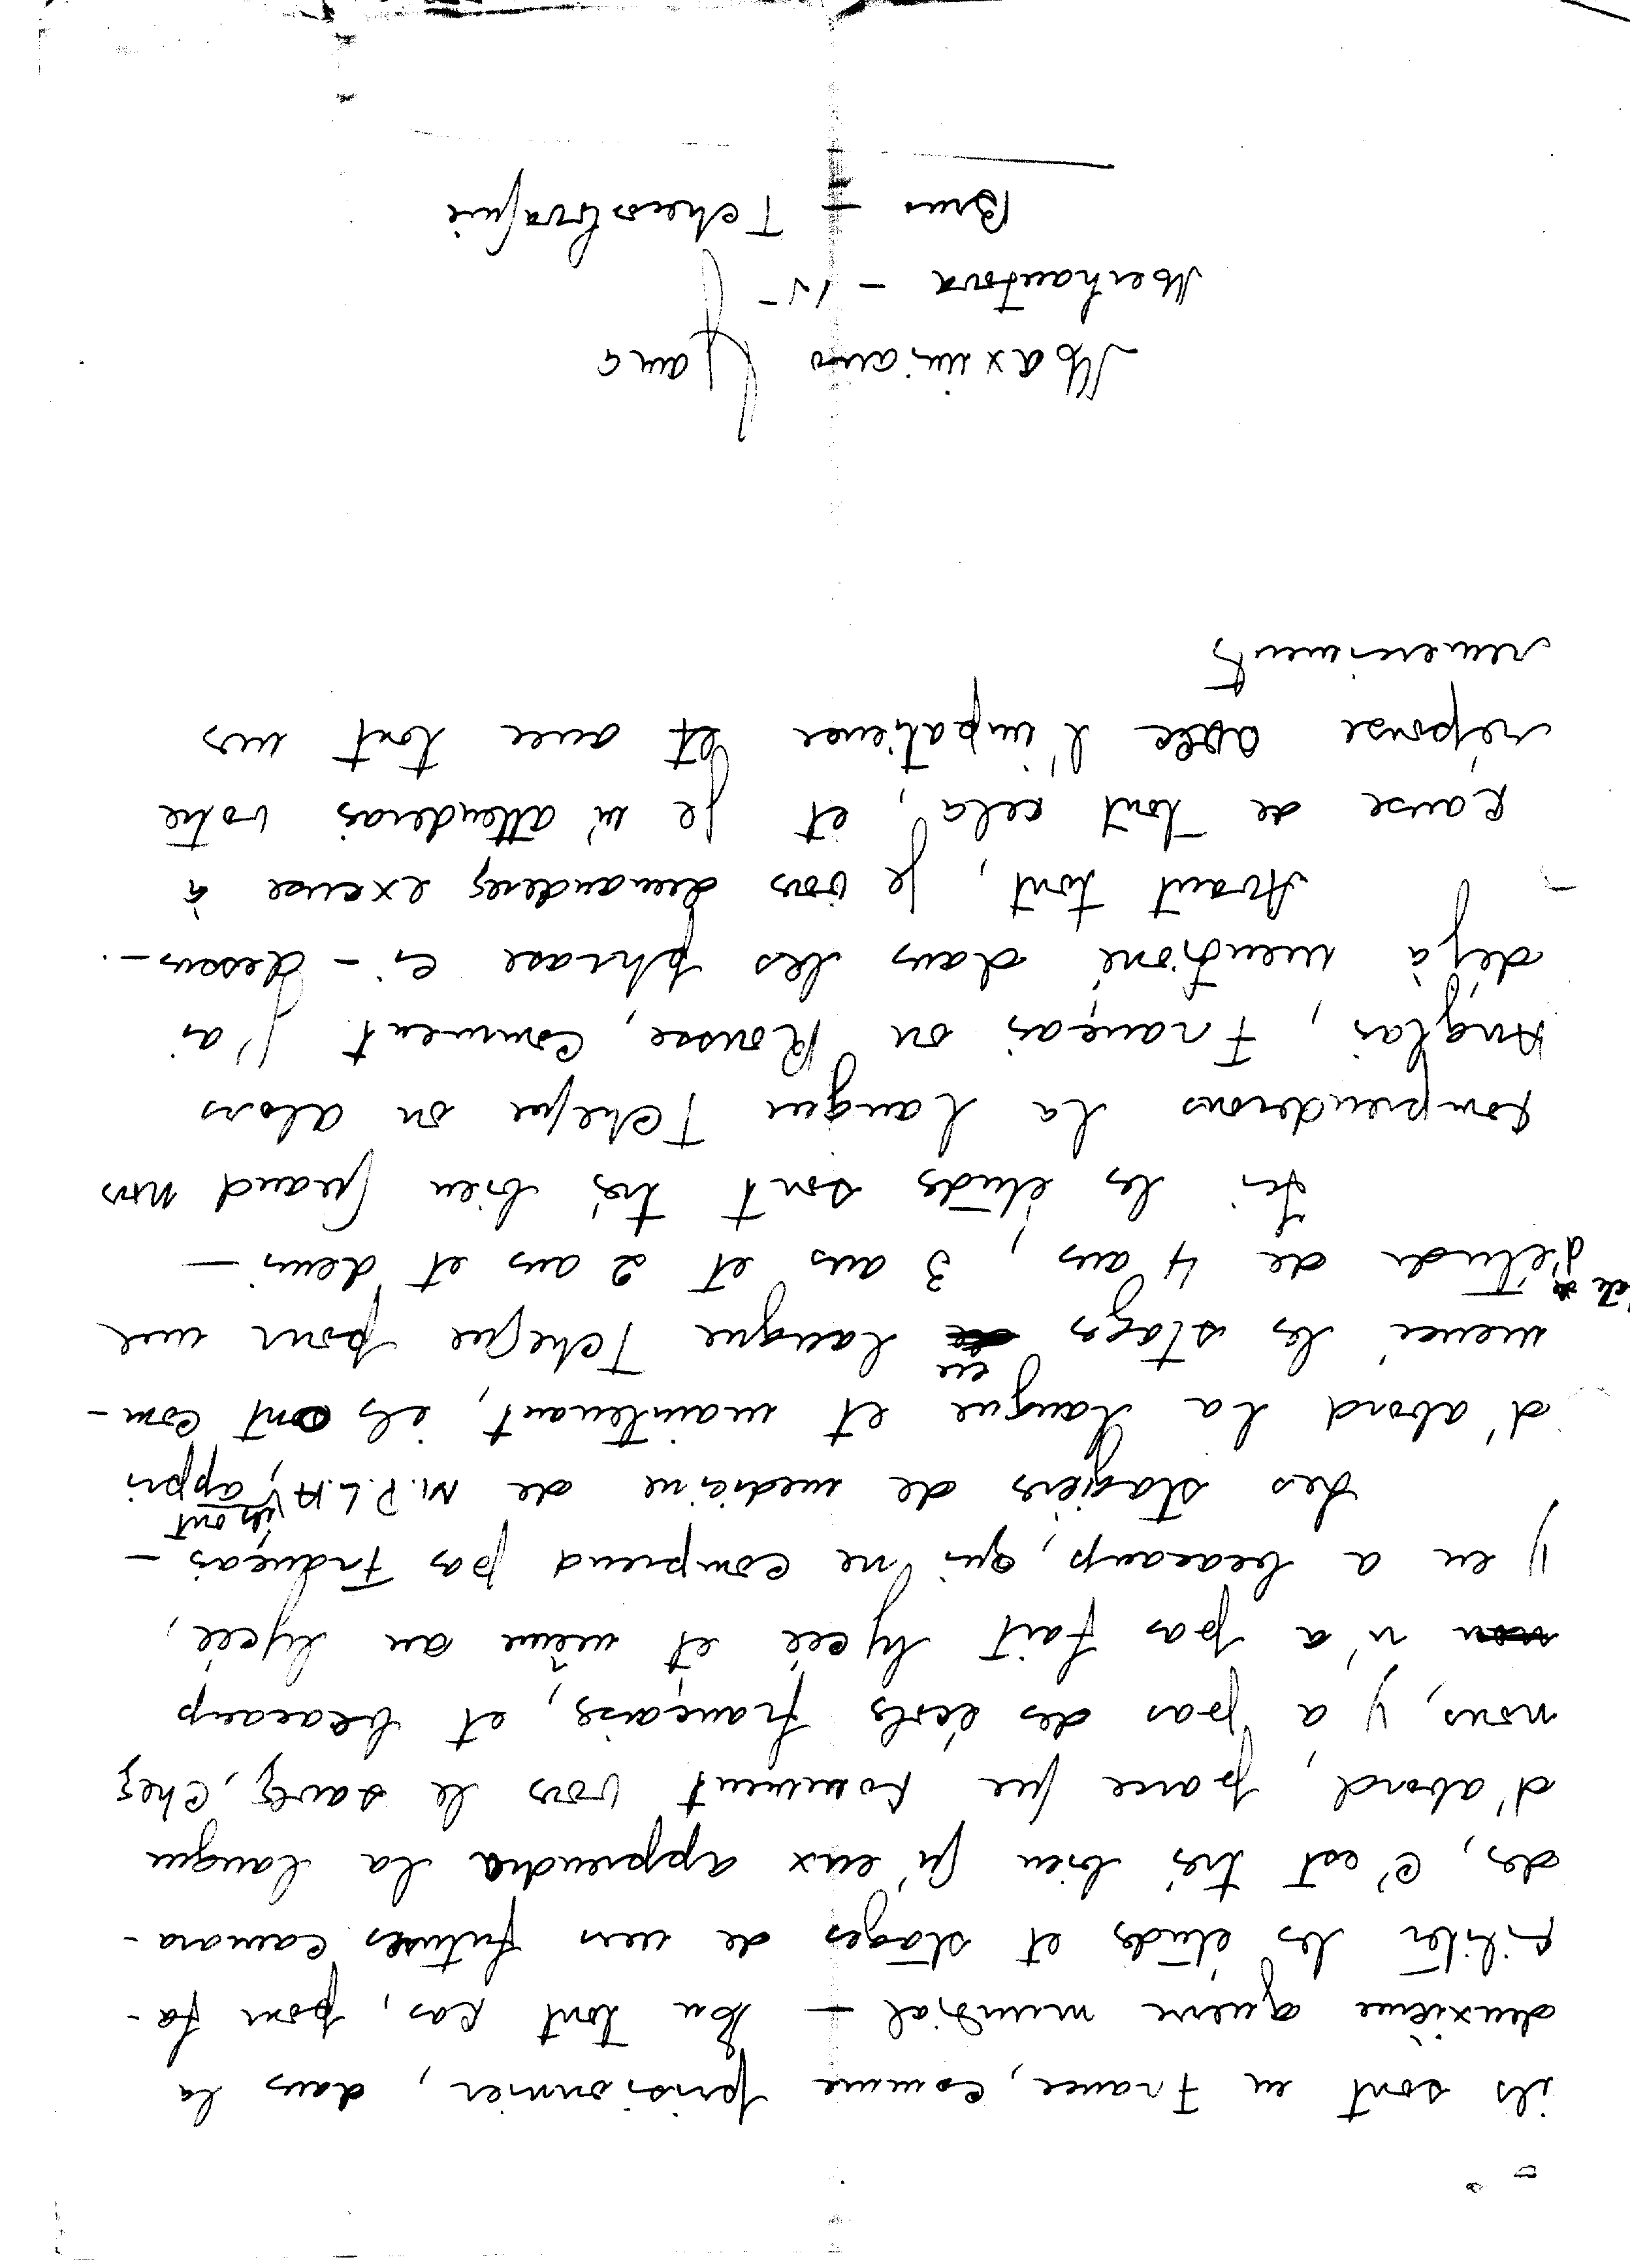 ils sont en France, comme prisionnier, dans la
deuxième guerre mundial — En tout cas, pour fa-
ciliter les études et stages de nos futures camara-
des, C'est trés bien qu'eux apprendra la langue
d'abord, parce que comment vous le savez, chez
nous, y a pas des écols français, et beacaup
n'a pas fait lyceé et même au lyceé,
y en a beacaup, qui ne comprend pas Français —
Les stagiers de medicine de M.P.L.A, ils ont appri
d'abord la langue et maintenant, ils ont com-
mencé les stages en langue Tcheque pour une
d'étude de 4 ans, 3 ans et 2 ans et demi —
Ici les études sont trés bien quand nous
comprenderons la langue Tcheque ou alors
Anglais, Français ou Rousse, comment j'ai
dejà mentioné dans les phrase ci - dessus —.
Avant tout, je vous demanderez excuse à
cause de tout cela, et je m'attenderais votre
réponse avec l'impatience et avec tout nos
remerciments
Maximiano
Merhautova - 15 -
Brno - Tchecoslovaquie